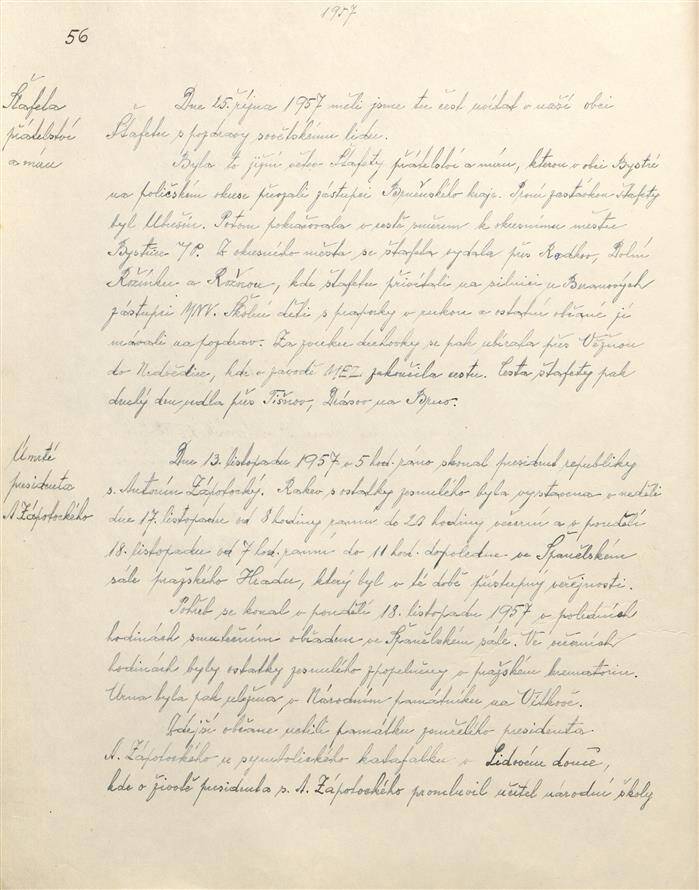 1957
56
Štafeta
přátelství
a míru
Dne 25. října 1957 měli jsme tu čest uvítat v naší obci
Štafetu s pozdravy sovětskému lidu.
Byla to jižní větev Štafety přátelství a míru, kterou v obci Bystré
na poličském okrese převzali zástupci Brněnského kraje. První zastávkou štafety
byl Ubušín. Potom pokračovala v cestě směrem k okresnímu městu
Bystřice n/P. Z okresního města se štafeta vydala přes Rodkov, Dolní
Rožínku a Rožnou, kde štafetu přivítali na silnici u Buranových
zástupci MNV. Školní děti s praporky v rukou a ostatní občané jí
mávali na pozdrav. Za zvuku dechovky se pak ubírala přes Věžnou
do Nedvědice, kde v závodě MEZ zakončila cestu. Cesta štafety pak
druhý den vedla přes Tišnov, Drásov na Brno.
Úmrtí
presidenta
A. Zápotockého
Dne 13. listopadu 1957 v 5 hod. ráno skonal president republiky
s. Antonín Zápotocký. Rakev s ostatky zesnulého byla vystavena v neděli
dne 17. listopadu od 8 hodiny ranní do 20 hodiny večerní a v pondělí
18. listopadu od 7 hod. ranní do 11 hod. dopoledne ve Španělském
sále pražského Hradu, který byl v té době přístupný veřejnosti.
Pohřeb se konal v pondělí 18. listopadu 1957 v poledních
hodinách smutečním obřadem ve Španělském sále. Ve večerních
hodinách byly ostatky zesnulého zpopelněny v pražském krematoriu.
Urna byla pak uložena v Národním památníku na Vítkově.
Zdejší občané uctili památku zemřelého presidenta
A. Zápotockého u symbolického katafalku v Lidovém domě,
kde o životě presidenta s. A. Zápotockého promluvil učitel národní školy